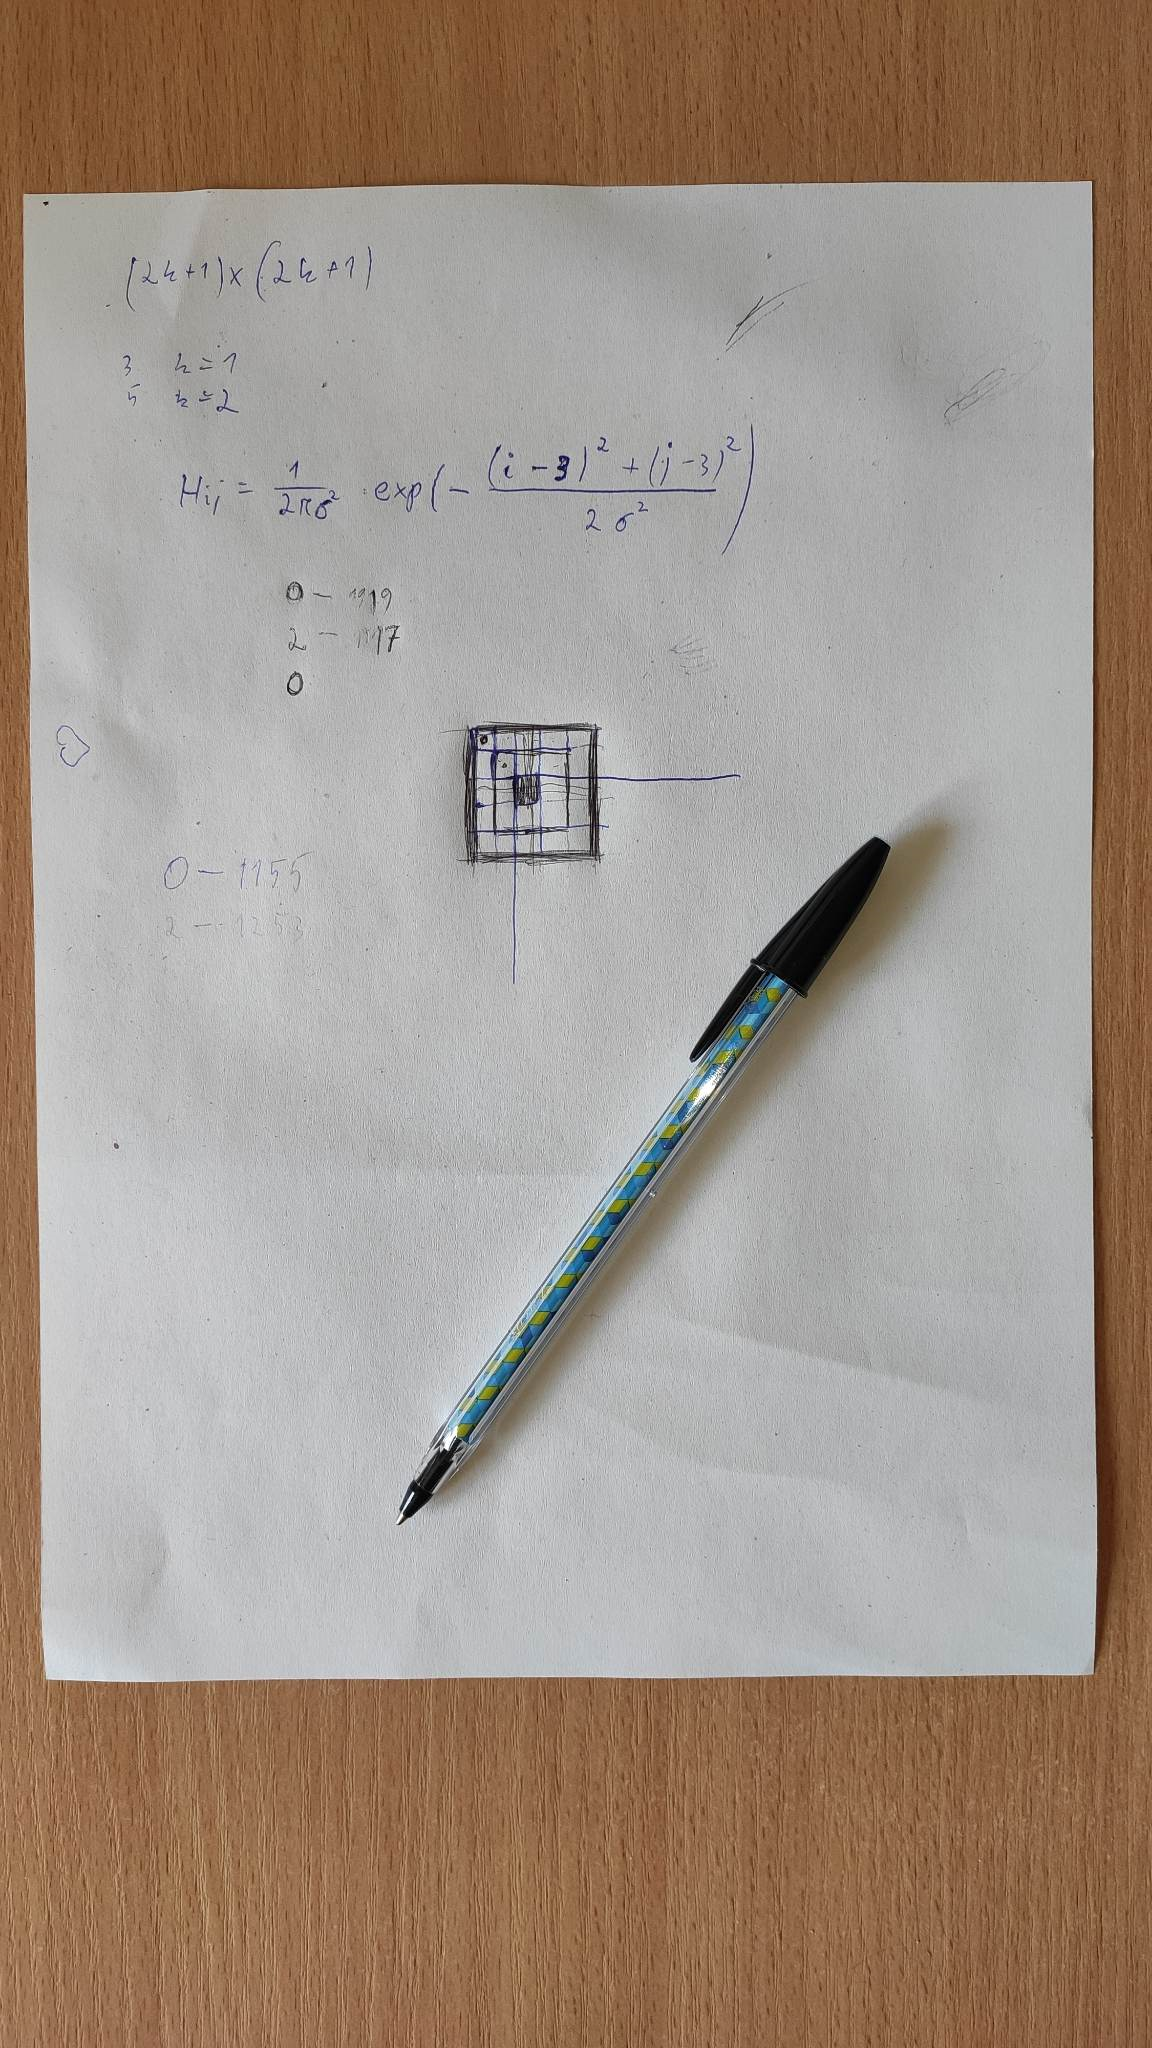 (2k+1)x(2k+1)
3 k=1
5 k=2
Hij = 1/2πσ² · exp(- (i-3)² + (j-3)² / 2σ²)
0 - 1919
2 -
0
0 - 1155
2 - 1253